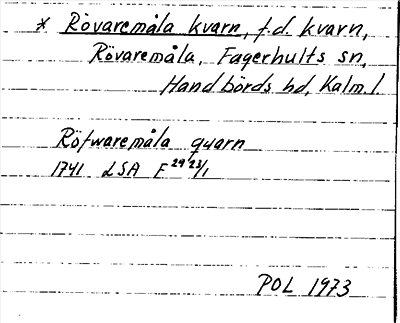 * Rövaremåla kvarn, f.d. kvarn,
Rövaremåla, Fagerhults sn,
Handbörds hd, Kalm. l.
Röfwaremåla quarn
1741 LSA F 29 23/1
POL 1973